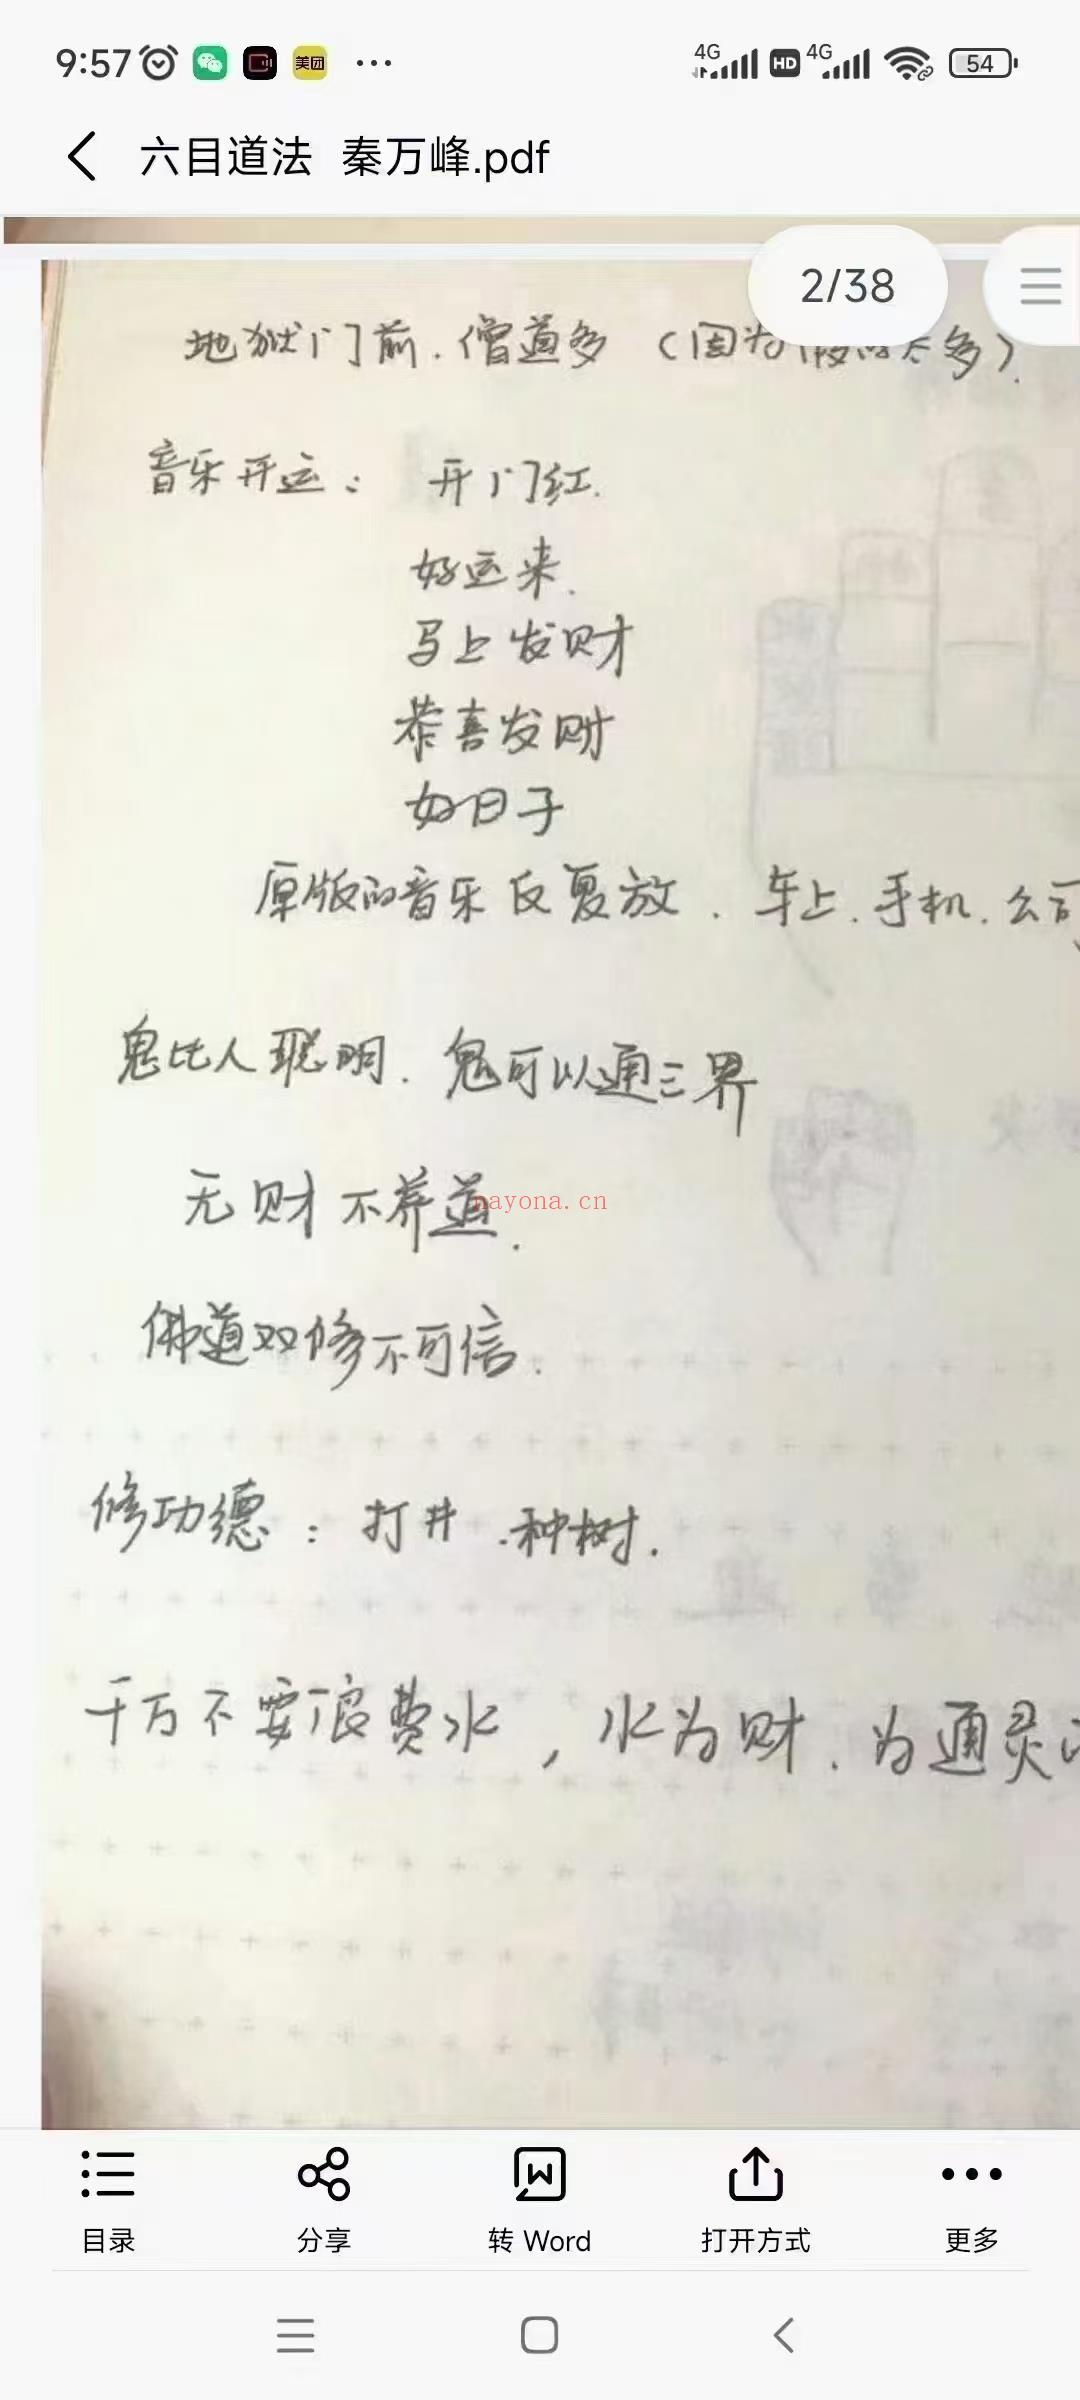 9:57 美团 ... 4G HD 4G 54
六目道法 秦万峰.pdf
2/38
地狱门前.僧道多 (因为假的太多).
音乐开运: 开门红.
好运来.
马上发财
恭喜发财
好日子
原版的音乐反复放.车上.手机.公司
鬼比人聪明.鬼可以通三界
无财不养道.
nayona.cn
佛道双修不可信.
修功德:打井.种树.
千万不要浪费水,水为财.为通灵
目录 分享 转 Word 打开方式 更多